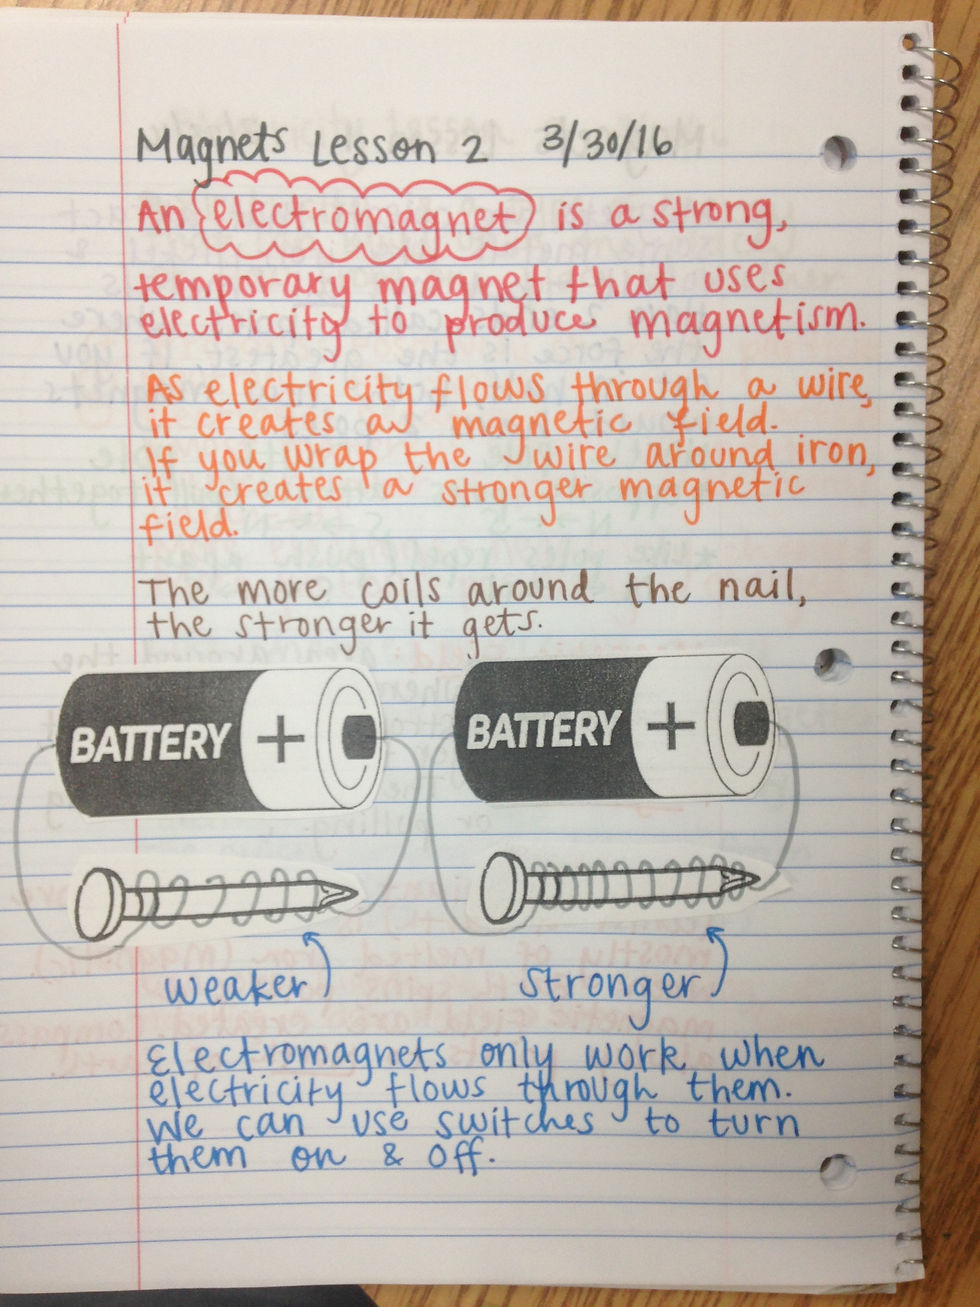 Magnets Lesson 2 3/30/16
An electromagnet is a strong,
temporary magnet that uses
electricity to produce magnetism.
As electricity flows through a wire,
it creates a magnetic field.
If you wrap the wire around iron,
it creates a stronger magnetic
field.
The more coils around the nail,
the stronger it gets.
BATTERY + BATTERY +
weaker stronger
Electromagnets only work when
electricity flows through them.
We can use switches to turn
them on & off.